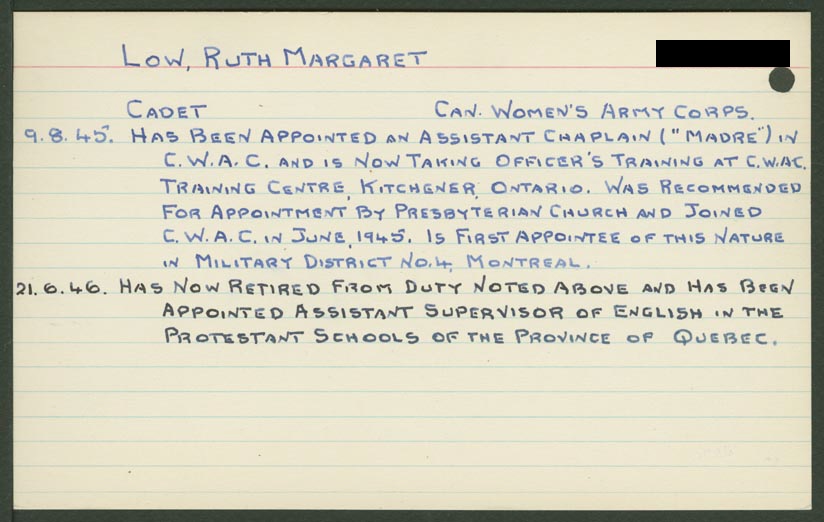 LOW, RUTH MARGARET
CADET CAN. WOMEN'S ARMY CORPS.
9.8.45. HAS BEEN APPOINTED AN ASSISTANT CHAPLAIN ("MADRE") IN
C.W.A.C. AND IS NOW TAKING OFFICER'S TRAINING AT C.W.A.C.
TRAINING CENTRE, KITCHENER, ONTARIO. WAS RECOMMENDED
FOR APPOINTMENT BY PRESBYTERIAN CHURCH AND JOINED
C.W.A.C. IN JUNE, 1945. IS FIRST APPOINTEE OF THIS NATURE
IN MILITARY DISTRICT NO.4, MONTREAL.
21.6.46. HAS NOW RETIRED FROM DUTY NOTED ABOVE AND HAS BEEN
APPOINTED ASSISTANT SUPERVISOR OF ENGLISH IN THE
PROTESTANT SCHOOLS OF THE PROVINCE OF QUEBEC.